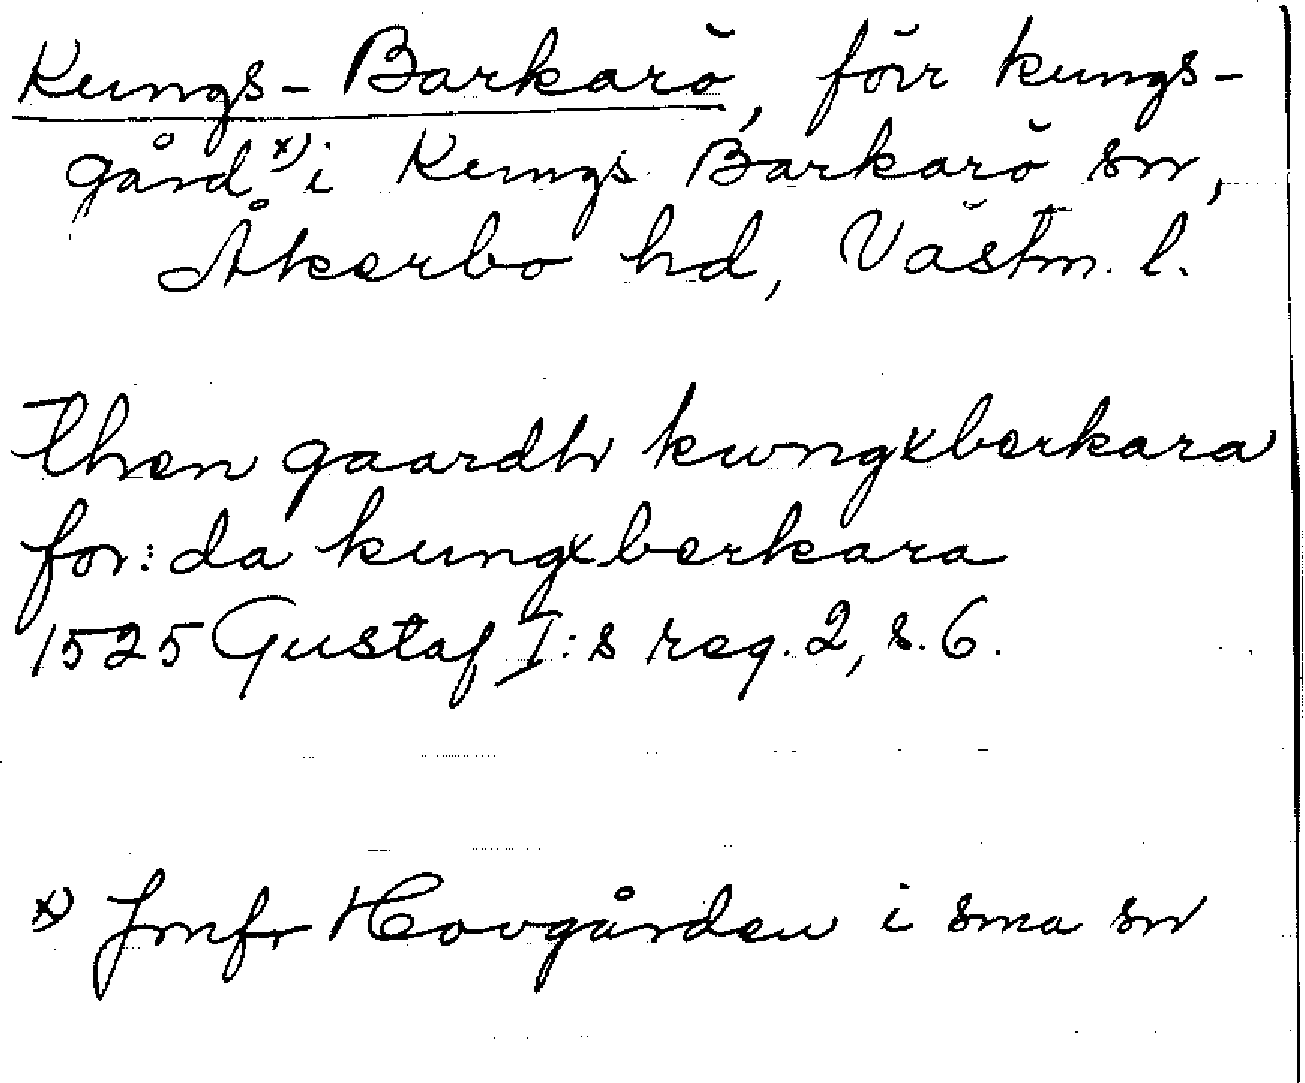 Kungs-Barkarö, förr kungs-
gård x) i Kungs Barkarö sn,
Åkerbo hd, Västm. l.
Then gaardh kwngxberkara
for: da kungxberkara
1525 Gustaf I:s reg. 2, s. 6.
x) Jmfr Hovgården i sma sn